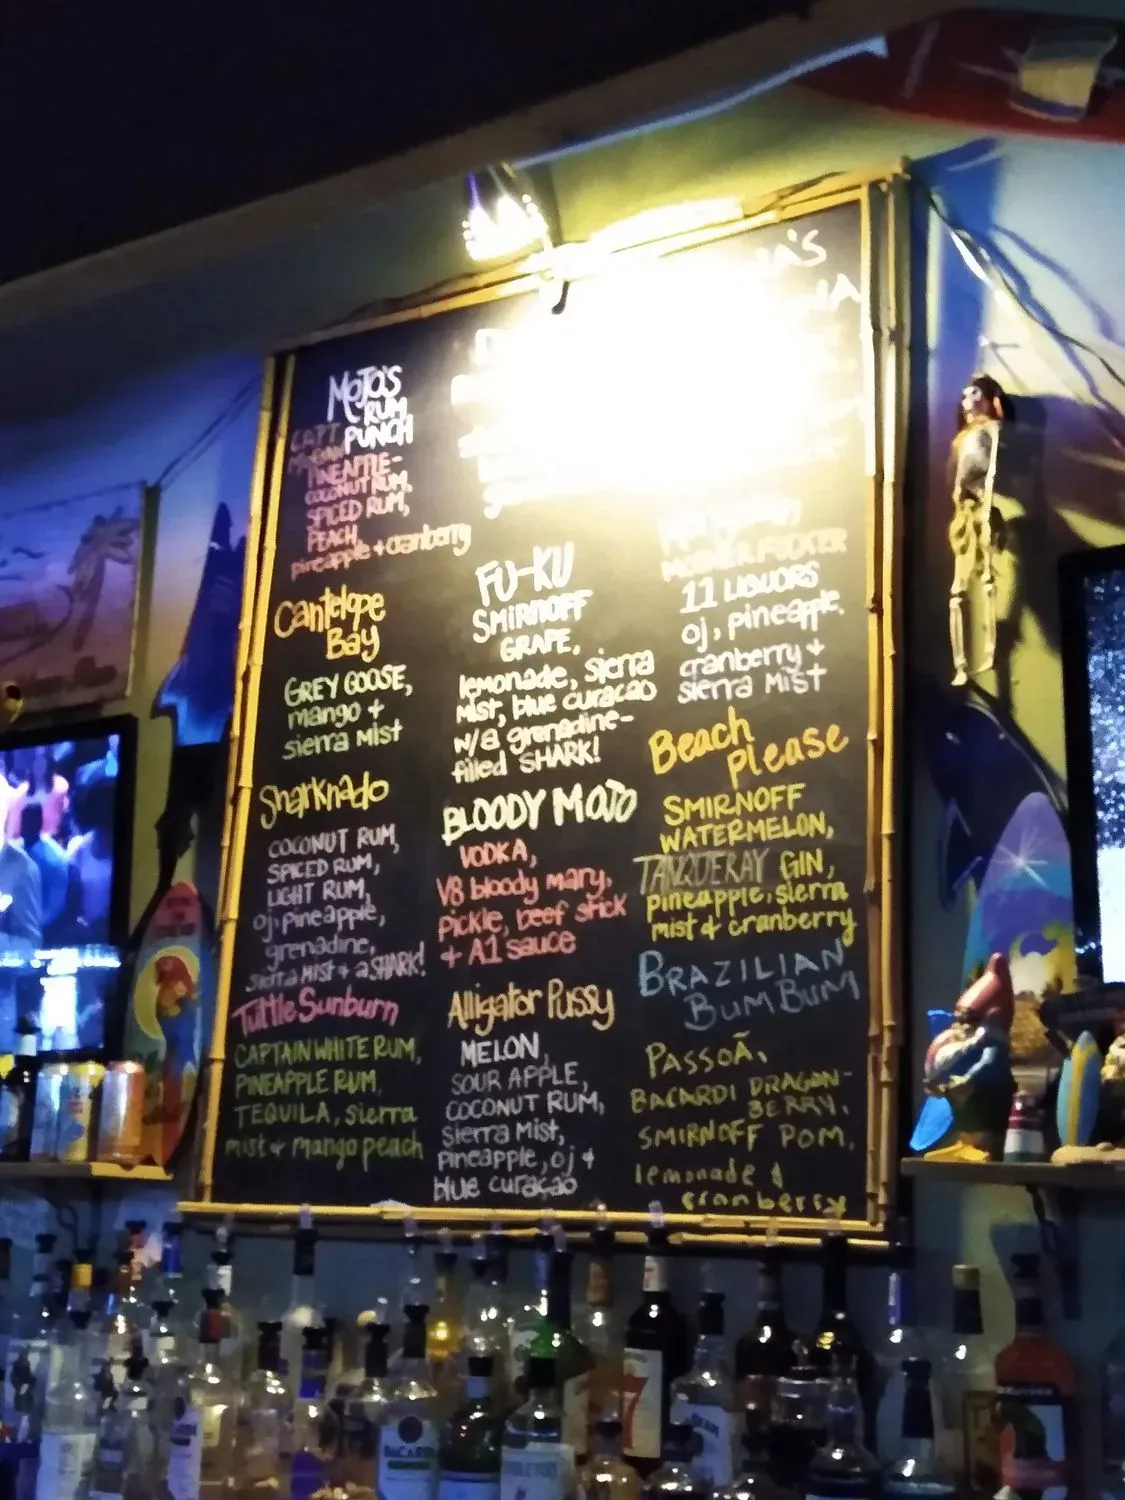 MOJO'S
RUM
PUNCH
CAPT
MORGAN
PINEAPPLE-
COCONUT RUM,
SPICED RUM,
PEACH,
pineapple + cranberry
Cantelope
Bay
GREY GOOSE,
mango +
sierra mist
Sharknado
COCONUT RUM,
SPICED RUM,
LIGHT RUM,
oj, pineapple,
grenadine,
sierra mist + a SHARK!
Turtle Sunburn
CAPTAIN WHITE RUM,
PINEAPPLE RUM,
TEQUILA, sierra
mist + mango peach
FU-KU
SMIRNOFF
GRAPE,
lemonade, sierra
mist, blue curacao
w/a grenadine-
filled SHARK!
BLOODY MOJO
VODKA,
V8 bloody mary,
pickle, beef stick
+ A1 sauce
Alligator Pussy
MELON,
SOUR APPLE,
COCONUT RUM,
sierra mist,
pineapple, oj +
blue curaçao
'S
IA
11 LIQUORS
oj, pineapple,
cranberry +
sierra mist
Beach
Please
SMIRNOFF
WATERMELON,
TANQUERAY GIN,
pineapple, sierra
mist + cranberry
BRAZILIAN
BUM BUM
PASSOÃ,
BACARDI DRAGON-
BERRY,
SMIRNOFF POM,
lemonade &
cranberry
BACARDI
7